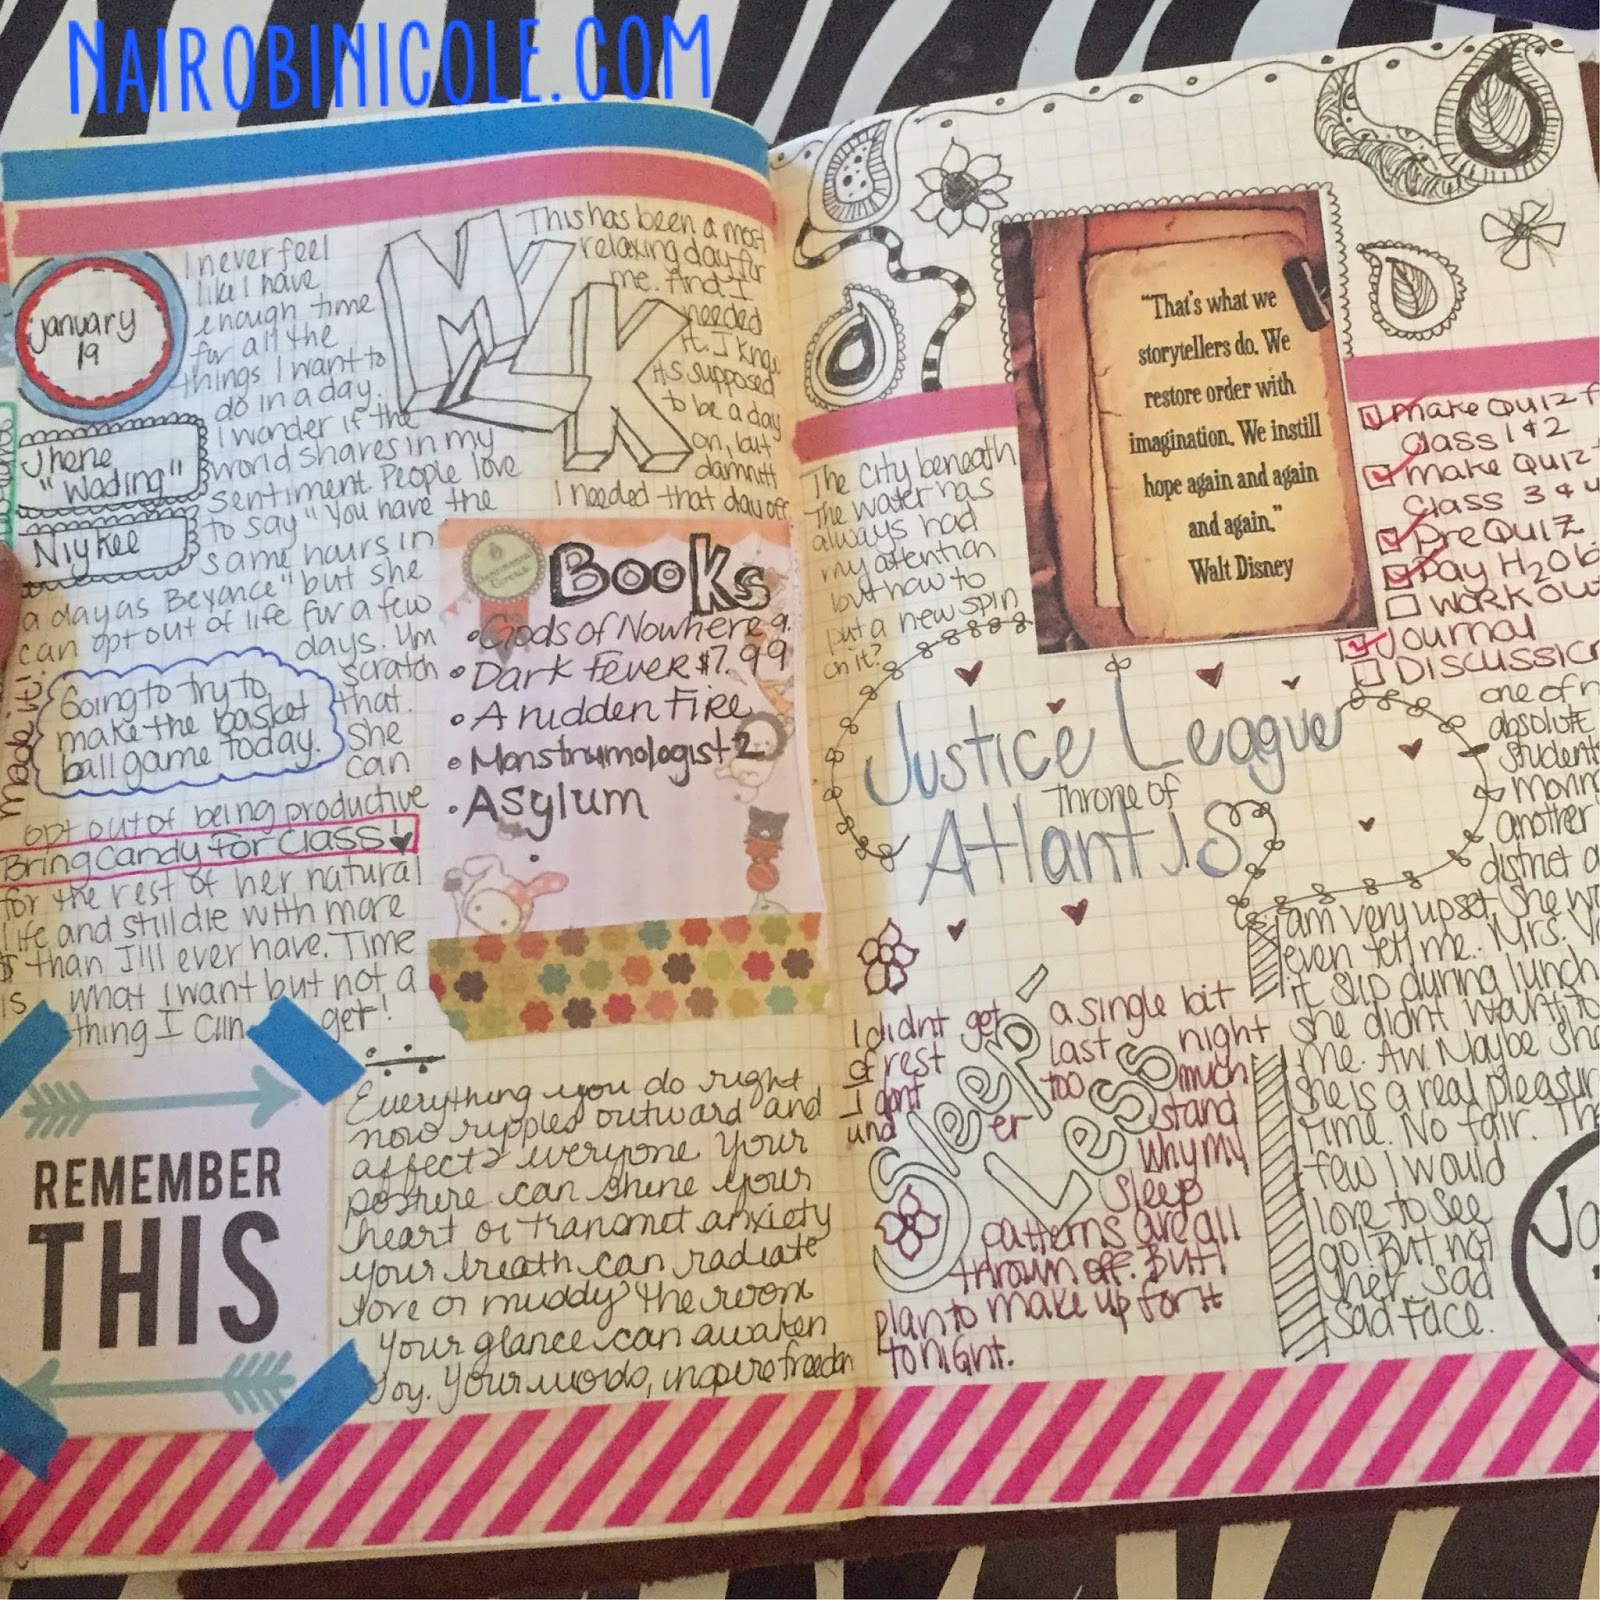 NAIROBINICOLE.COM
January
19
I never feel
like I have
enough time
for all the
things I want to
do in a day.
I wonder if the
world shares in my
sentiment. People love
to say "You have the
same hours in
a day as Beyonce" but she
can opt out of life for a few
days. Um
scratch
that.
She
can
opt out of being productive
Bring Candy for Class!
for the rest of her natural
life and still die with more
$ than I'll ever have. Time
is what I want but not a
thing I can get!
Jhene
"Wading"
Niykee
made it!
Going to try to
make the basket
ball game today.
MLK
This has been a most
relaxing day for
me. And I
needed
it. I know
its supposed
to be a day
on, but
damnitt
I needed that day off.
Books
• Gods of Nowhere 9.
• Dark Fever $7.99
• A hidden Fire
• Monstrumologist 2
• Asylum
REMEMBER
THIS
Everything you do right
now ripples outward and
affects everyone. Your
posture can shine your
heart or transmit anxiety
Your breath can radiate
love or muddy the room
Your glance can awaken
Joy. Your words, inspire freedom
"That's what we
storytellers do. We
restore order with
imagination. We instill
hope again and again
and again."
Walt Disney
The City beneath
The water has
always had
my attention
but how to
put a new spin
on it?
Make Quiz f
Class 1 & 2
Make Quiz f
Class 3 & 4
Pre Quiz
Pay H2O b
Workou
Journal
Discussion
Justice League
Throne of
Atlantis
I didnt get a single bit
of rest last night
I dont too much
und er stand
why my
sleep
patterns are all
thrown off. But I
plan to make up for it
tonight.
Sleep
Less
one of
absolute
student
another
district a
I am very upset, she w
even tell me. Mrs.
it slip during lunch
she didnt want to
me. Aw. Maybe she
she is a real pleasur
time. No fair. Th
few I would
love to see
go! But not
her. Sad
Sad face.